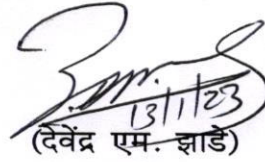 13/1/23
(देवेंद्र एम. झाडे)